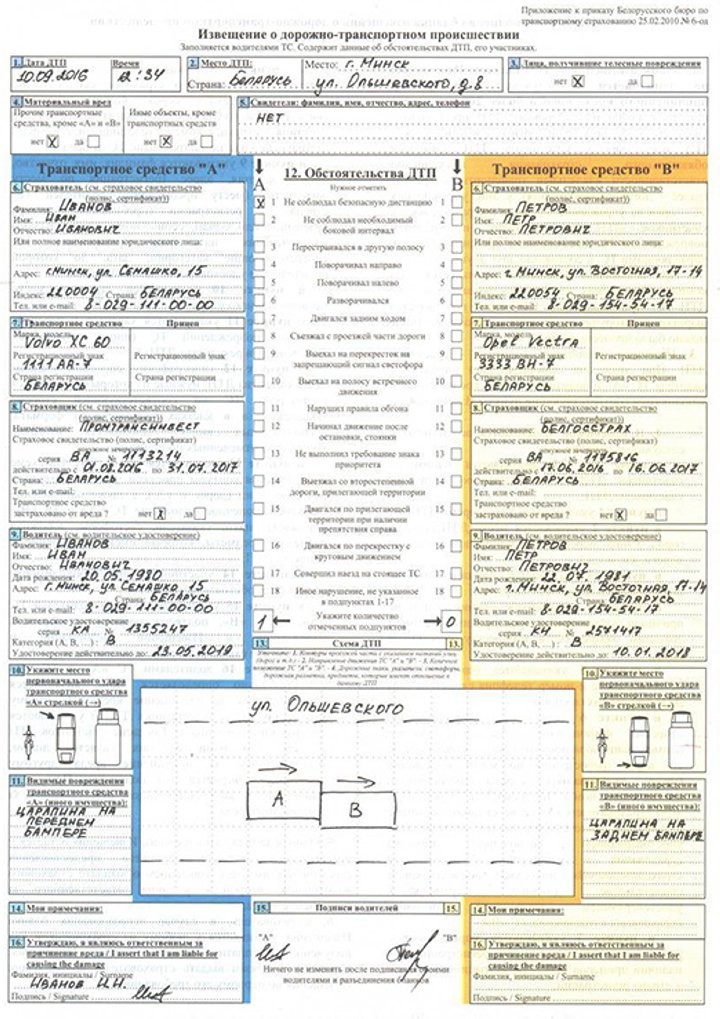 Приложение к приказу Белорусского бюро по
транспортному страхованию 25.02.2010 № 6-од
Извещение о дорожно-транспортном происшествии
Заполняется водителями ТС. Содержит данные об обстоятельствах ДТП, его участниках.
1. Дата ДТП Время
10.09.2016 12:34
2. Место ДТП: Место: г. Минск
Страна: Беларусь ул. Ольшевского, д.8
3. Лица, получившие телесные повреждения
нет X да
4. Материальный вред
Прочие транспортные средства, кроме «А» и «В»
нет X да
Иные объекты, кроме транспортных средств
нет X да
5. Свидетели: фамилия, имя, отчество, адрес, телефон
НЕТ
Транспортное средство "А"
6. Страхователь (см. страховое свидетельство
(полис, сертификат))
Фамилия: ИВАНОВ
Имя: ИВАН
Отчество: ИВАНОВИЧ
Или полное наименование юридического лица:
Адрес: г.Минск, ул. Семашко, 15
Индекс: 220004 Страна: БЕЛАРУСЬ
Тел. или e-mail: 8-029-111-00-00
7. Транспортное средство Прицеп
Марка, модель
Volvo XC 60
Регистрационный знак Регистрационный знак
1111 АА-7
Страна регистрации Страна регистрации
БЕЛАРУСЬ
8. Страховщик (см. страховое свидетельство
(полис, сертификат))
Наименование: ПРОМТРАНСИНВЕСТ
Страховое свидетельство (полис, сертификат)
серия ВА № 1113214
действительно с 01.08.2016 по 31.07.2017
Страна: БЕЛАРУСЬ
Тел. или e-mail:
Транспортное средство
застраховано от вреда ? нет X да
9. Водитель (см. водительское удостоверение)
Фамилия: ИВАНОВ
Имя: ИВАН
Отчество: ИВАНОВИЧ
Дата рождения: 20.05.1980
Адрес: г.Минск, ул. Семашко, 15
Страна: БЕЛАРУСЬ
Тел. или e-mail: 8-029-111-00-00
Водительское удостоверение
серия КА № 1355247
Категория (А, В, ...): В
Удостоверение действительно до: 23.05.2019
12. Обстоятельства ДТП
А В
Нужное отметить
X 1 Не соблюдал безопасную дистанцию 1
2 Не соблюдал необходимый боковой интервал 2
3 Перестраивался в другую полосу 3
4 Поворачивал направо 4
5 Поворачивал налево 5
6 Разворачивался 6
7 Двигался задним ходом 7
8 Съезжал с проезжей части дороги 8
9 Выехал на перекресток на запрещающий сигнал светофора 9
10 Выехал на полосу встречного движения 10
11 Нарушил правила обгона 11
12 Начинал движение после остановки, стоянки 12
13 Не выполнил требование знака приоритета 13
14 Выезжал со второстепенной дороги, прилегающей территории 14
15 Двигался по прилегающей территории при наличии препятствия справа 15
16 Двигался по перекрестку с круговым движением 16
17 Совершил наезд на стоящее ТС 17
18 Иное нарушение, не указанное в подпунктах 1-17 18
1 Укажите количество отмеченных подпунктов 0
Транспортное средство "В"
6. Страхователь (см. страховое свидетельство
(полис, сертификат))
Фамилия: ПЕТРОВ
Имя: ПЕТР
Отчество: ПЕТРОВИЧ
Или полное наименование юридического лица:
Адрес: г. Минск, ул. Восточная, 17-14
Индекс: 220054 Страна: БЕЛАРУСЬ
Тел. или e-mail: 8-029-154-54-17
7. Транспортное средство Прицеп
Марка, модель
Opel Vectra
Регистрационный знак Регистрационный знак
3333 ВН-7
Страна регистрации Страна регистрации
БЕЛАРУСЬ
8. Страховщик (см. страховое свидетельство
(полис, сертификат))
Наименование: БЕЛГОССТРАХ
Страховое свидетельство (полис, сертификат)
серия ВА № 1175816
действительно с 17.06.2016 по 16.06.2017
Страна: БЕЛАРУСЬ
Тел. или e-mail:
Транспортное средство
застраховано от вреда ? нет X да
9. Водитель (см. водительское удостоверение)
Фамилия: ПЕТРОВ
Имя: ПЕТР
Отчество: ПЕТРОВИЧ
Дата рождения: 22.07.1981
Адрес: г.Минск, ул. Восточная 17-14
Страна: БЕЛАРУСЬ
Тел. или e-mail: 8-029-154-54-17
Водительское удостоверение
серия КН № 2571417
Категория (А, В, ...): В
Удостоверение действительно до: 10.01.2018
10. Укажите место первоначального удара транспортного средства «А» стрелкой (→)
11. Видимые повреждения транспортного средства «А» (иного имущества):
ЦАРАПИНА НА
ПЕРЕДНЕМ
БАМПЕРЕ
13. Схема ДТП 13.
ул. Ольшевского
А В
10. Укажите место первоначального удара транспортного средства «В» стрелкой (→)
11. Видимые повреждения транспортного средства «В» (иного имущества):
ЦАРАПИНА НА
ЗАДНЕМ БАМПЕРЕ
14. Мои примечания:
16. Утверждаю, я являюсь ответственным за
причинение вреда / I assert that I am liable for
causing the damage
Фамилия, инициалы / Surname
ИВАНОВ И.И.
Подпись / Signature
15. Подписи водителей 15.
"А" "В"
Ничего не изменять после подписания обоими
водителями и разъединения бланков
14. Мои примечания:
16. Утверждаю, я являюсь ответственным за
причинение вреда / I assert that I am liable for
causing the damage
Фамилия, инициалы / Surname
Подпись / Signature